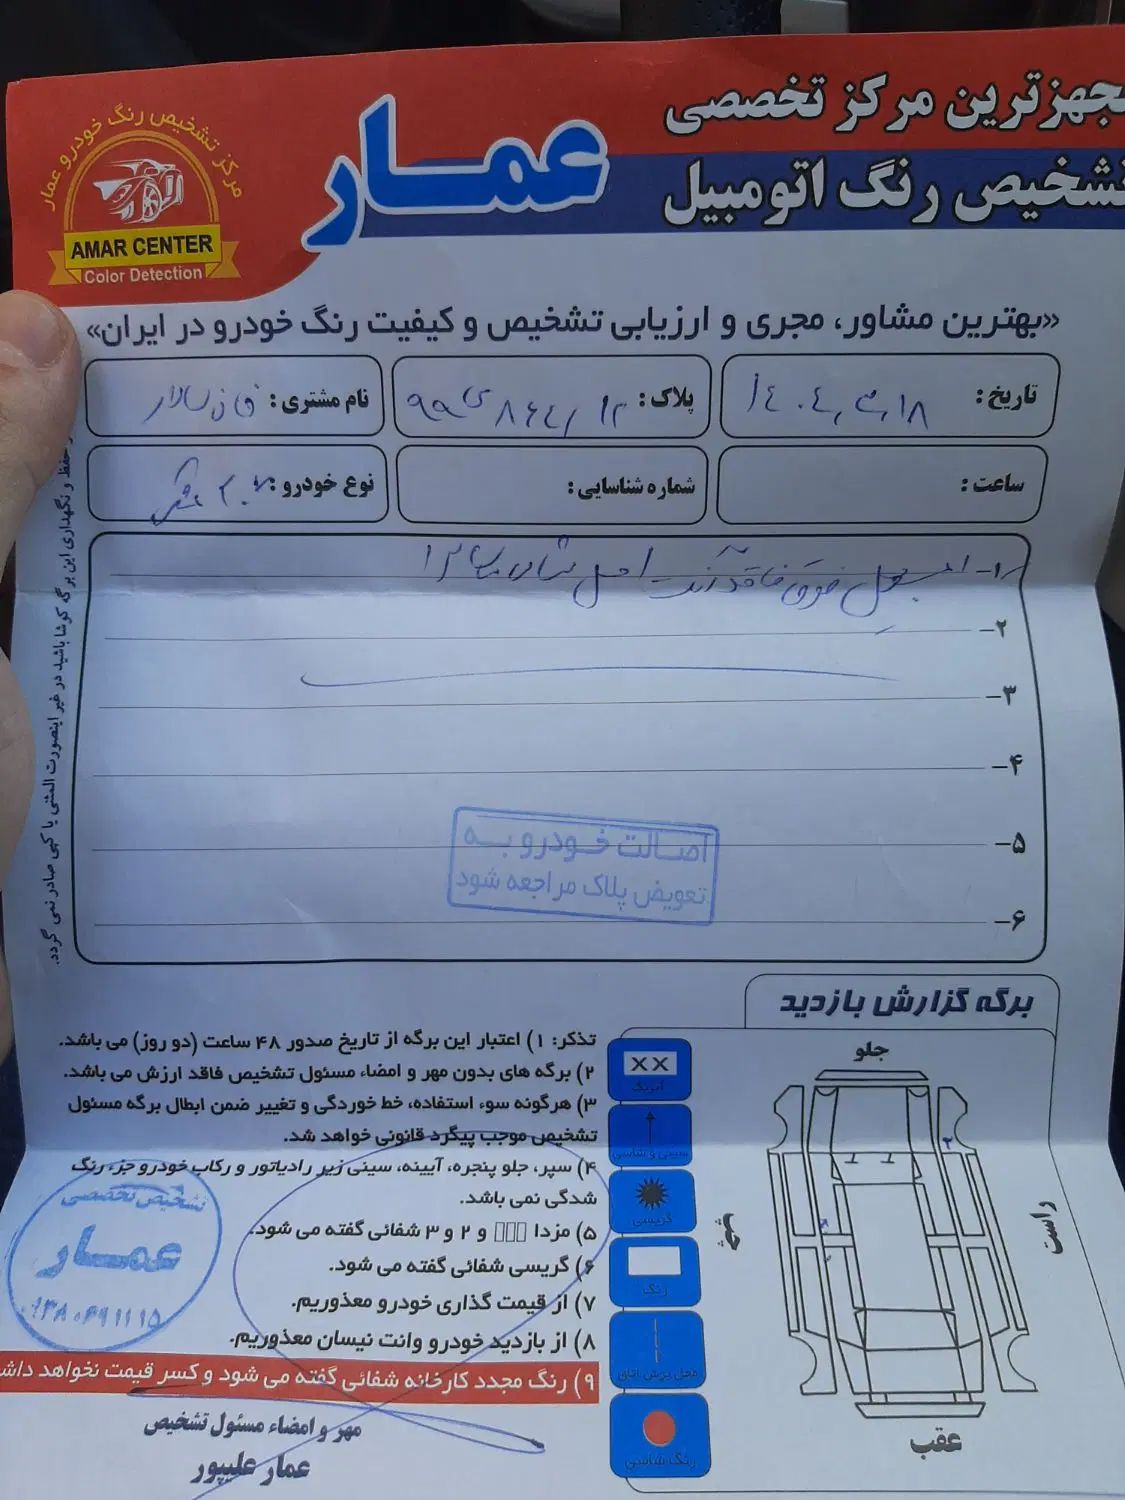 مجهزترین مرکز تخصصی
تشخیص رنگ اتومبیل
عمار
مرکز تشخیص رنگ خودرو عمار
AMAR CENTER
Color Detection
«بهترین مشاور، مجری و ارزیابی تشخیص و کیفیت رنگ خودرو در ایران»
تاریخ: ۱۴۰۴,۳,۱۸
پلاک: ۱۲/ ۸۶۴ ی ۹۹
نام مشتری:
ساعت:
شماره شناسایی:
نوع خودرو: ۲۰۷
۱- فوق فاقد
۲-
۳-
۴-
۵-
۶-
اصالت خودرو به
تعویض پلاک مراجعه شود
در حفظ و نگهداری این برگه کوشا باشید در غیر اینصورت المثنی یا کپی صادر نمی گردد.
برگه گزارش بازدید
جلو
راست
چپ
عقب
۲
XX
آبرنگ
سینی و شاسی
گریسی
رنگ
محل برش اتاق
رنگ شاسی
تذکر: ۱) اعتبار این برگه از تاریخ صدور ۴۸ ساعت (دو روز) می باشد.
۲) برگه های بدون مهر و امضاء مسئول تشخیص فاقد ارزش می باشد.
۳) هرگونه سوء استفاده، خط خوردگی و تغییر ضمن ابطال برگه مسئول
تشخیص موجب پیگرد قانونی خواهد شد.
۴) سپر، جلو پنجره، آیینه، سینی زیر رادیاتور و رکاب خودرو جزء رنگ
شدگی نمی باشد.
۵) مزدا و ۲ و ۳ شفائی گفته می شود.
۶) گریسی شفائی گفته می شود.
۷) از قیمت گذاری خودرو معذوریم.
۸) از بازدید خودرو وانت نیسان معذوریم.
۹) رنگ مجدد کارخانه شفائی گفته می شود و کسر قیمت نخواهد داش
مهر و امضاء مسئول تشخیص
عمار علیپور
تشخیص تخصصی
عمار